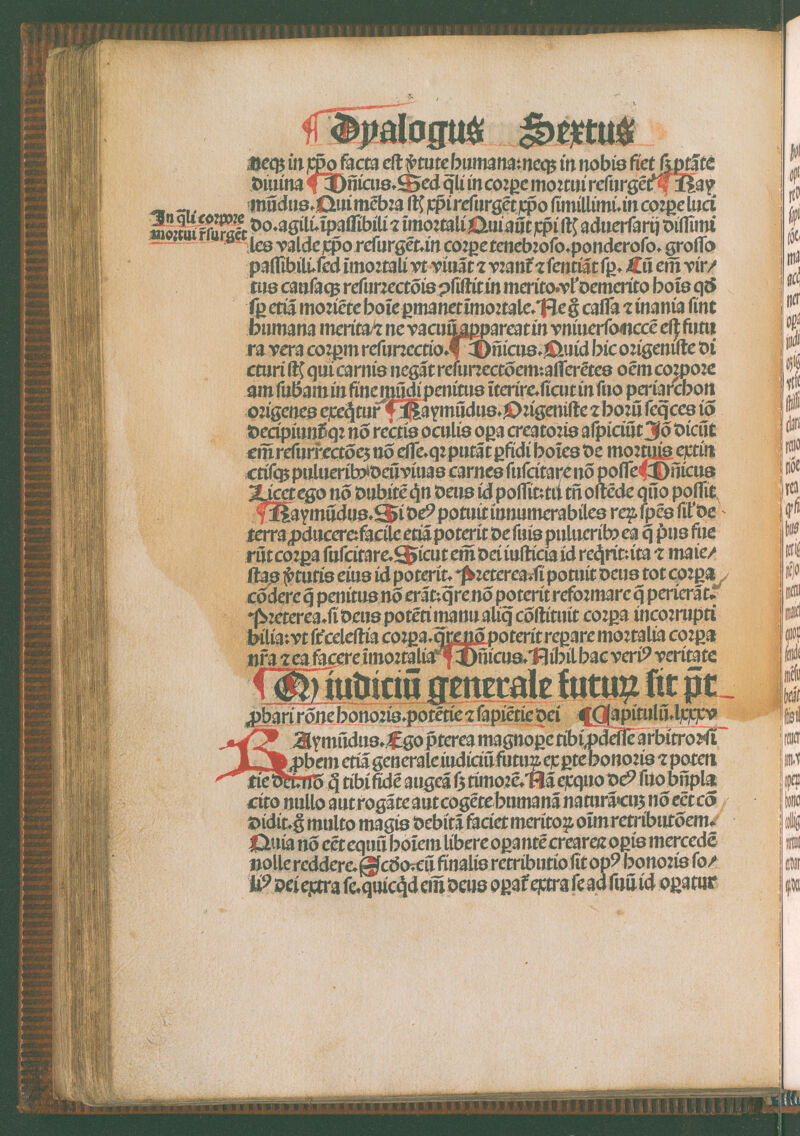 Dyalogus Sextus
neqꝫ in xp̄o facta est v̓tute humana: neqꝫ in nobis fiet sꝫ ptāte
diuina ¶ Dn̄icus. Sed q̄li in corꝑe mortui resurgēt ¶ Ray
mūdus. Qui mēbra st̄ xp̄i resurgēt xp̄o simillimi. in corꝑe luci
do. agili. īpassibili ⁊ īmortali Qui aūt xp̄i st̄ aduersarij dissimi
In q̄li corpore
mortui r̄surgēt
les valde xp̄o resurgēt. in corꝑe tenebroso. ponderoso. grosso
passibili. sed īmortali vt viuāt ⁊ vrant᷑ ⁊ sentiāt sꝑ. Cū em̄ vir/
tus causaqꝫ resurrectōis ꝯsistit in merito. vl̓ demerito hoīs qđ
sꝑ etiā moriēte hoīe ꝑmanet īmortale. Ne g̊ cassa ⁊ inania sint
humana merita/ ⁊ ne vacuū appareat in vniuerso. nccē est futu
ra vera corꝑm resurrectio. ¶ Dn̄icus. Quid hic origeniste di
cturi st̄ qui carnis negāt resurrectōem: asserētes oēm corpore
am sub̄am in fine mūdi penitus īterire. sicut in suo periarchon
origenes exeq̄tur ¶ Raymūdus. Origeniste ⁊ horū seq̄ces iō
decipiunt᷑ qꝛ nō rectis oculis oꝑa creatoris aspiciūt Jō dicūt
em̄ resurrectōeꝫ nō esse. qꝛ putāt ꝑfidi hoīes de mortuis extin
ctisqꝫ pulueribꝰ deū viuas carnes suscitare nō posse ¶ Dn̄icus
Licet ego nō dubitē q̇n deus id possit: tu tn̄ ostēde quō possit
¶ Raymūdus. Si deꝰ potuit innumerabiles reꝝ sp̄es sil̓ de
terra ꝓducere: facile etiā poterit de suis pulueribꝰ ea q̄ p̓us fue
rūt corꝑa suscitare. Sicut em̄ dei iusticia id req̇rit: ita ⁊ maie/
stas v̓tutis eius id poterit. Preterea. si potuit deus tot corꝑa
cōdere q̄ penitus nō erāt: q̄re nō poterit reformare q̄ perierāt.
Preterea. si deus potēti manu aliq̄ cōstituit corꝑa incorrupti
bilia: vt st̄ celestia corꝑa. q̄re nō poterit reꝑare mortalia corꝑa
nr̄a ⁊ ea facere īmortalia ¶ Dn̄icus. Nihil hac veriꝰ veritate
¶ Qꝙ iudiciū generale futuꝝ sit p̄t
ꝓbari rōne honoris. potētie ⁊ sapiētie dei ¶ Capitulū. lxxxv
RAymūdus. Ego p̄terea magnoꝑe tibi ꝓdesse arbitror si
ꝓbem etiā generale iudiciū futuꝝ ex ꝑte honoris ⁊ poten
tie dei. nō q̇ tibi fidē augeā sꝫ timorē. Nā ex quo deꝰ suo bn̄pla
cito nullo aut rogāte aut cogēte humanā naturā cuꝫ nō eēt cō
didit. g̊ multo magis debitā faciet meritoꝝ oīm retributōem.
Quia nō eēt equū hoīem libere oꝑantē creare ⁊ oꝑis mercedē
nolle reddere. Scđo. cū finalis retributio sit opꝰ honoris so/
liꝰ dei extra se. quicq̇d em̄ deus oꝑat᷑ extra se ad suū id oꝑatur